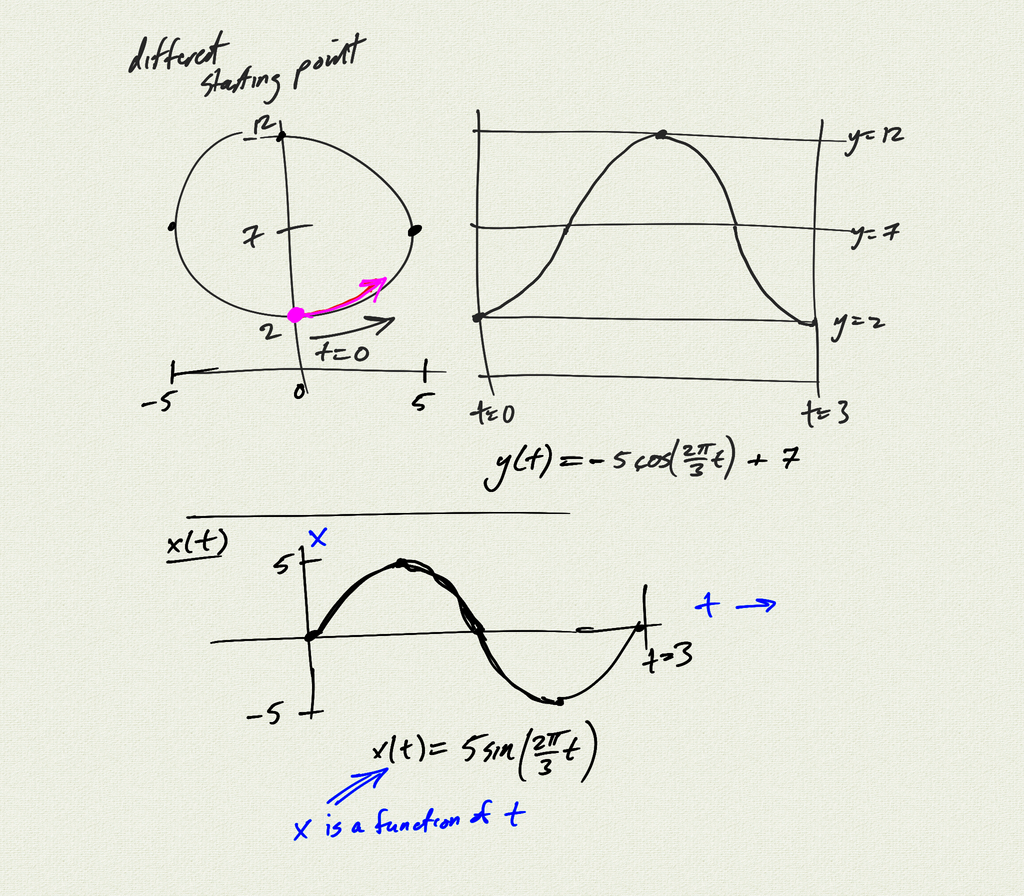 different
starting point
12
7
2
t=0
-5
0
5
y=12
y=7
y=2
t=0
t=3
y(t) = -5 cos(2π/3 t) + 7
x(t)
x
5
-5
t →
t=3
x(t) = 5 sin(2π/3 t)
x is a function of t